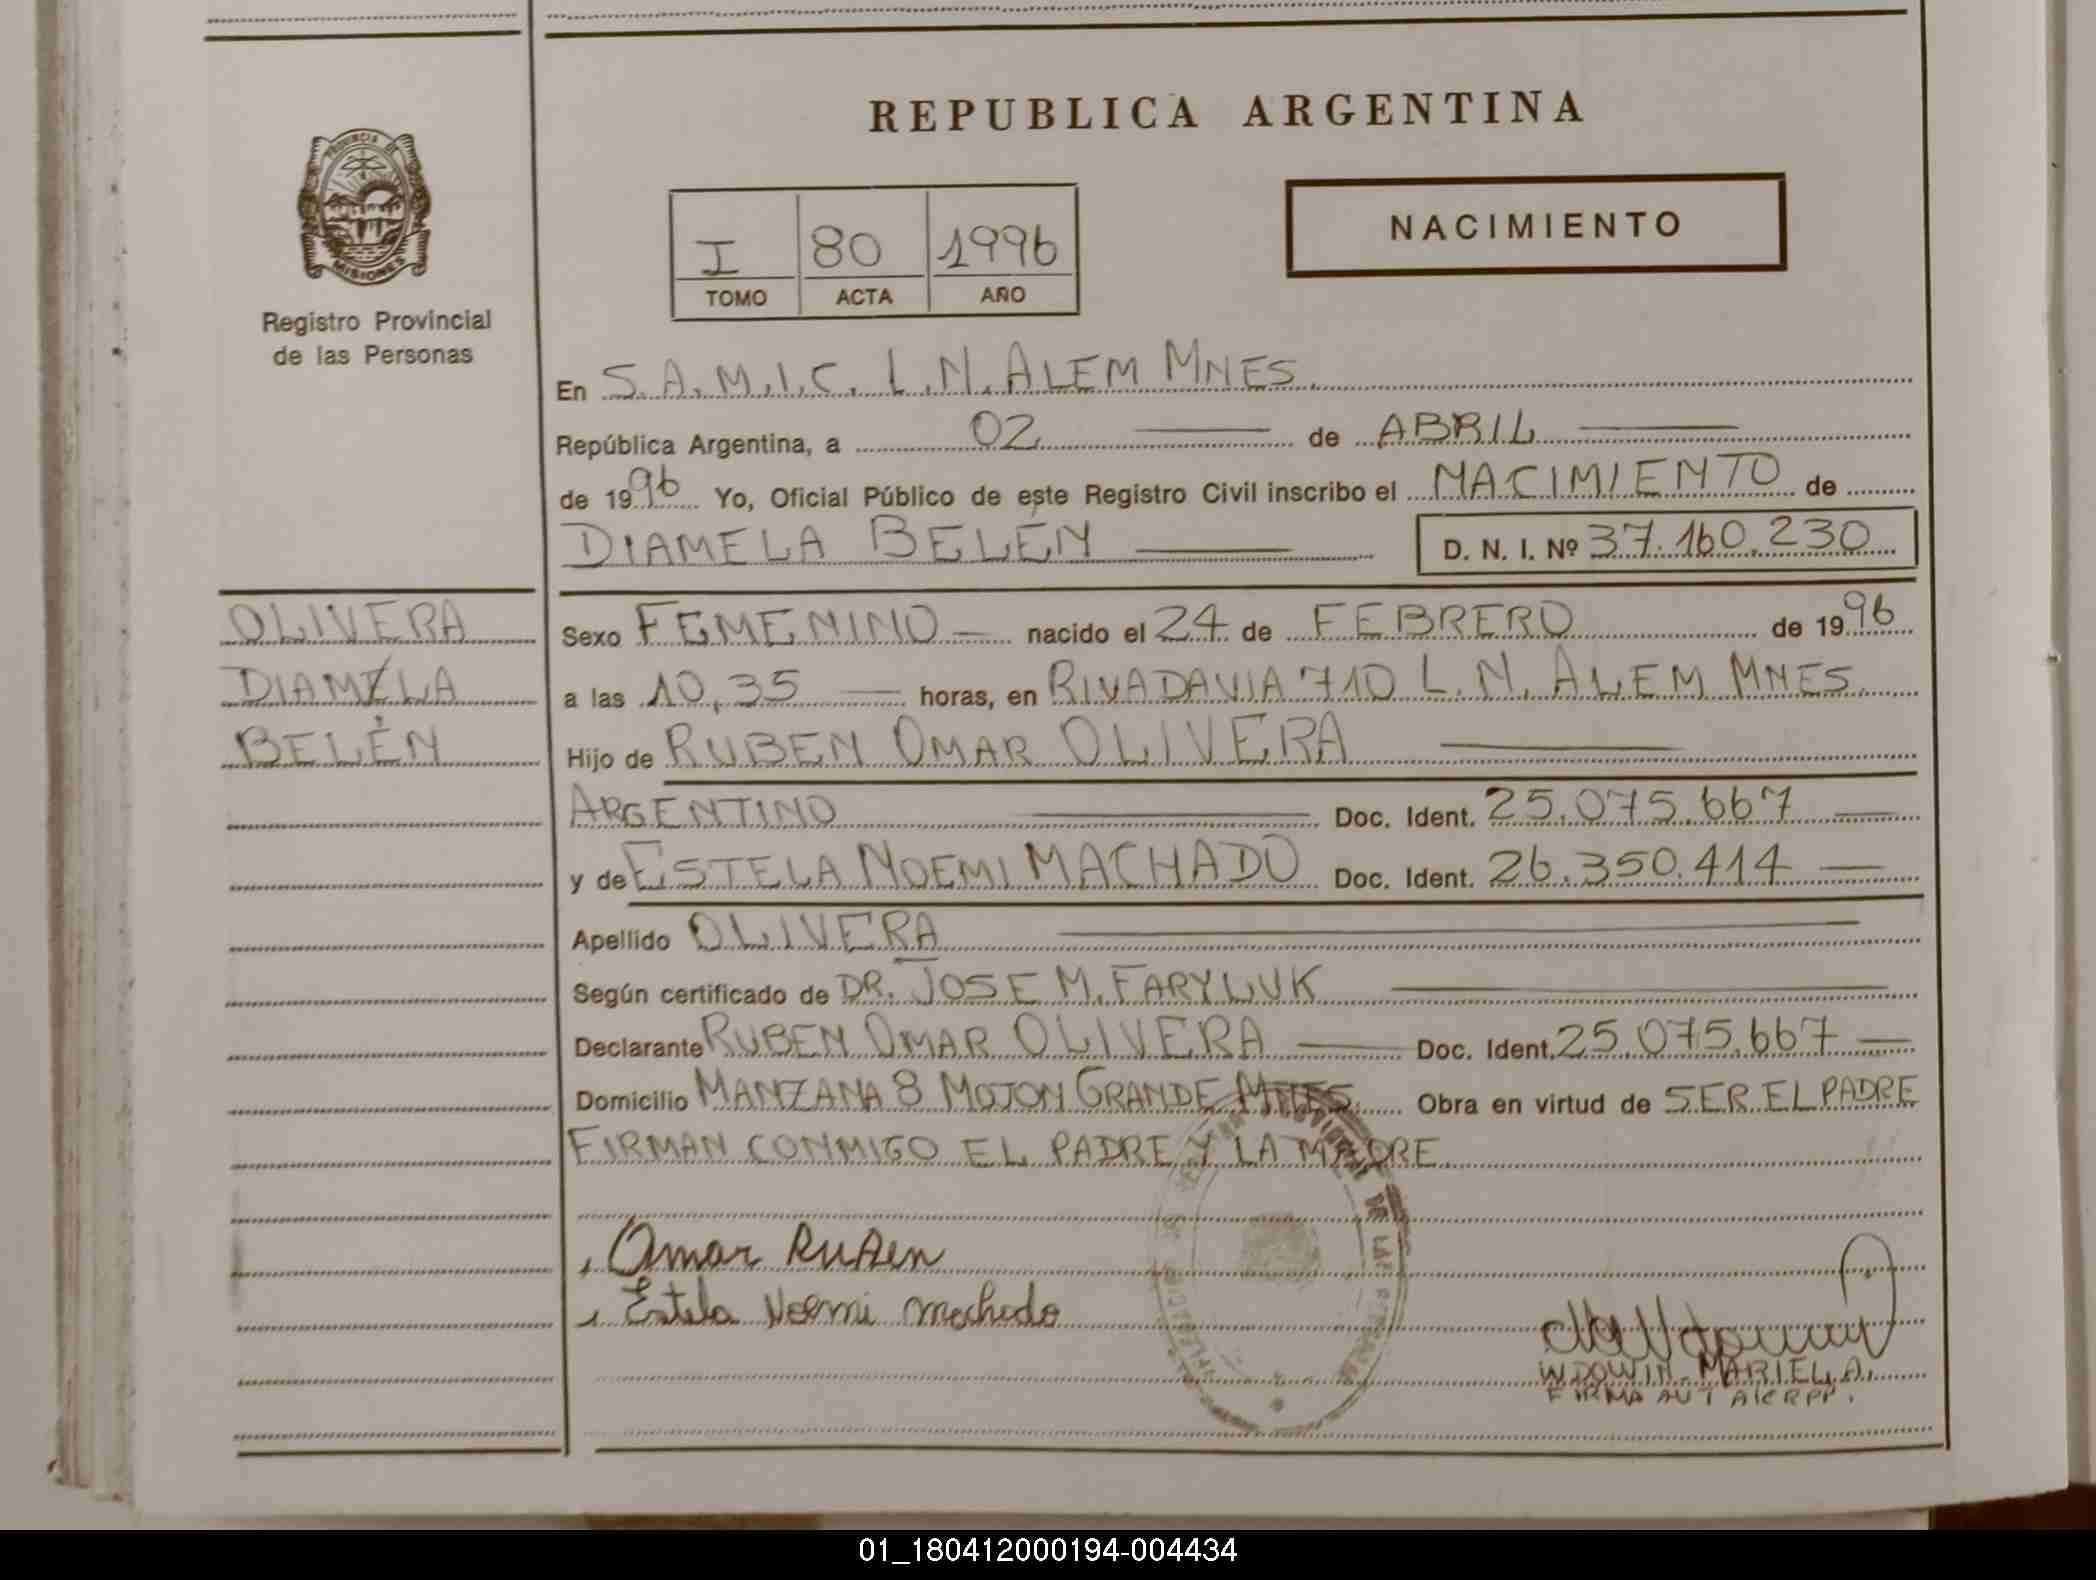 REPUBLICA ARGENTINA
PROVINCIA DE
MISIONES
Registro Provincial
de las Personas
NACIMIENTO
I 80 1996
TOMO ACTA AÑO
En S.A.M.I.C. L.N. ALEM MNES.
República Argentina, a 02 de ABRIL
de 1996 Yo, Oficial Público de este Registro Civil inscribo el NACIMIENTO de
DIAMELA BELÉN D. N. I. Nº 37.160.230
OLIVERA
DIAMELA
BELÉN
Sexo FEMENINO nacido el 24 de FEBRERO de 1996
a las 10,35 horas, en RIVADAVIA 710 L.N. ALEM MNES.
Hijo de RUBEN OMAR OLIVERA
ARGENTINO Doc. Ident. 25.075.667
y de ESTELA NOEMI MACHADO Doc. Ident. 26.350.414
Apellido OLIVERA
Según certificado de DR. JOSE M. FARYLUK
Declarante RUBEN OMAR OLIVERA Doc. Ident. 25.075.667
Domicilio MANZANA 8 MOJON GRANDE MNES. Obra en virtud de SER EL PADRE
FIRMAN CONMIGO EL PADRE Y LA MADRE.
Omar Ruben
Estela Noemi Machado
WDOWIN MARIEL A.
01_180412000194-004434